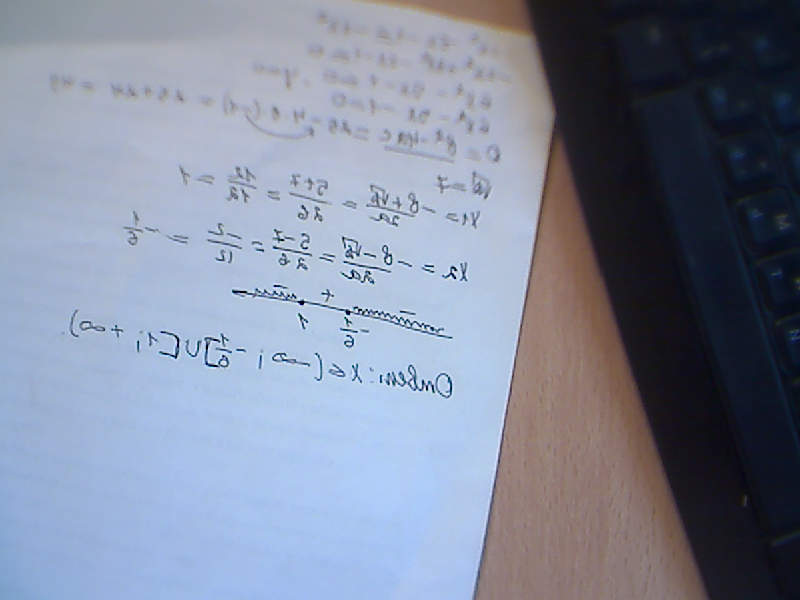 6x² - 5x - 1 = 0
D = b² - 4ac = 25 - 4·6·(-1) = 25 + 24 = 49
√D = 7
x1 = -b+√D/2a = 5+7/2·6 = 12/12 = 1
x2 = -b-√D/2a = 5-7/2·6 = -2/12 = -1/6
- + -
-1/6 1
Ответ: x∈(-∞; -1/6]∪[1; +∞).